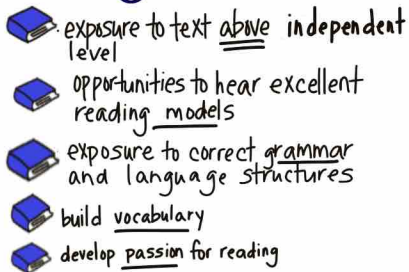 exposure to text above independent
level
opportunities to hear excellent
reading models
exposure to correct grammar
and language structures
build vocabulary
develop passion for reading